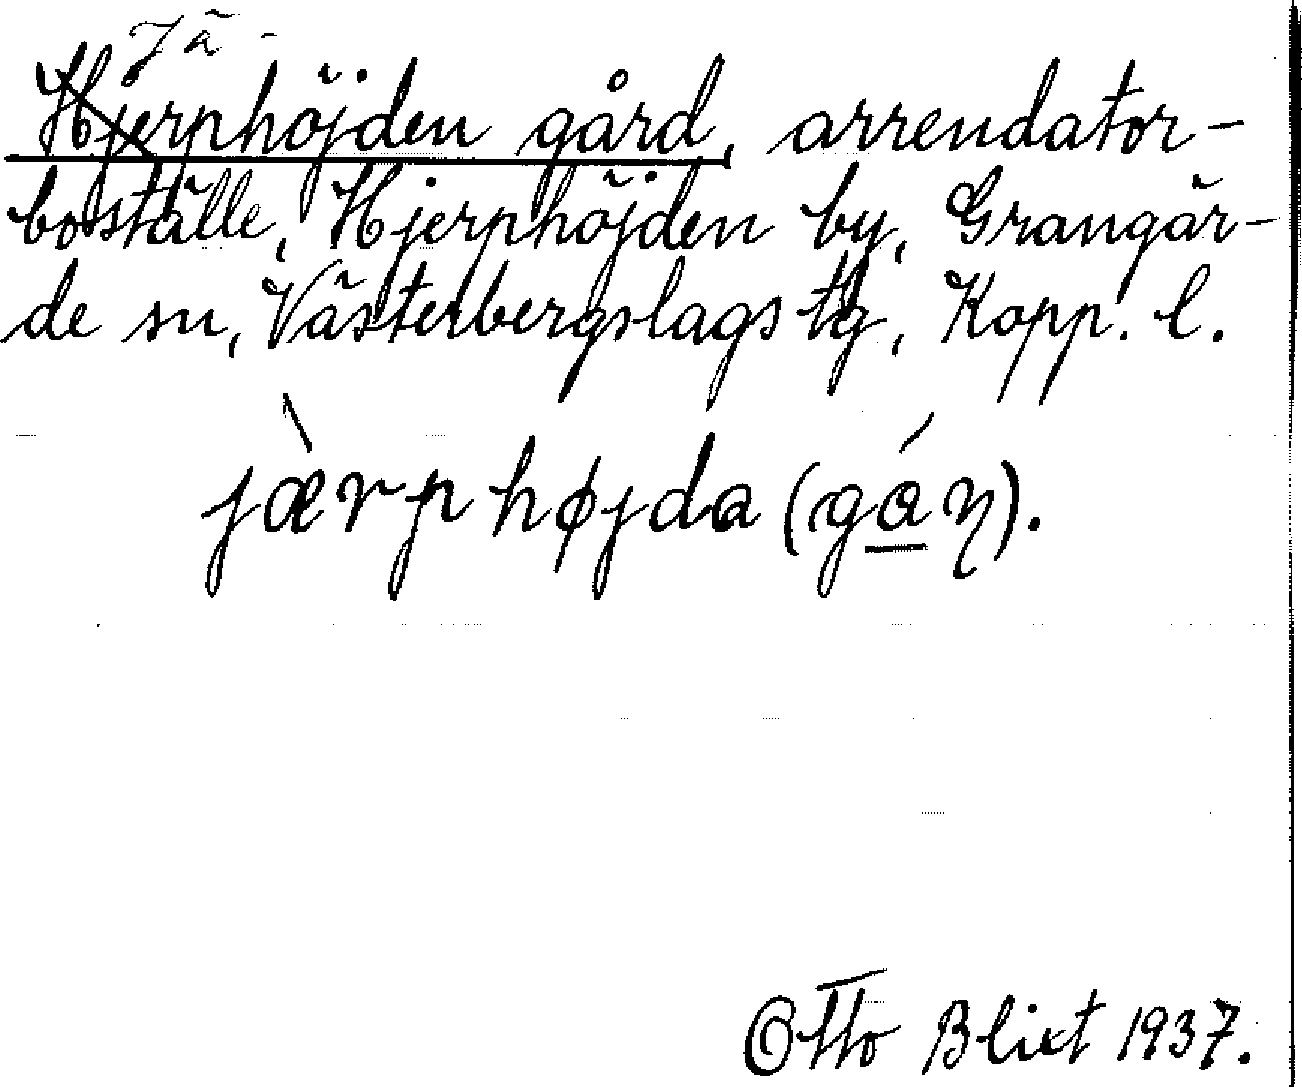 Jä-
Hjerphöjden gård, arrendator-
boställe, Hjerphöjden by, Grangär-
de sn, Västerbergslags tg, Kopp. l.
jæ̀rphøjda (gá̱ɳ).
Otto Blixt 1937.